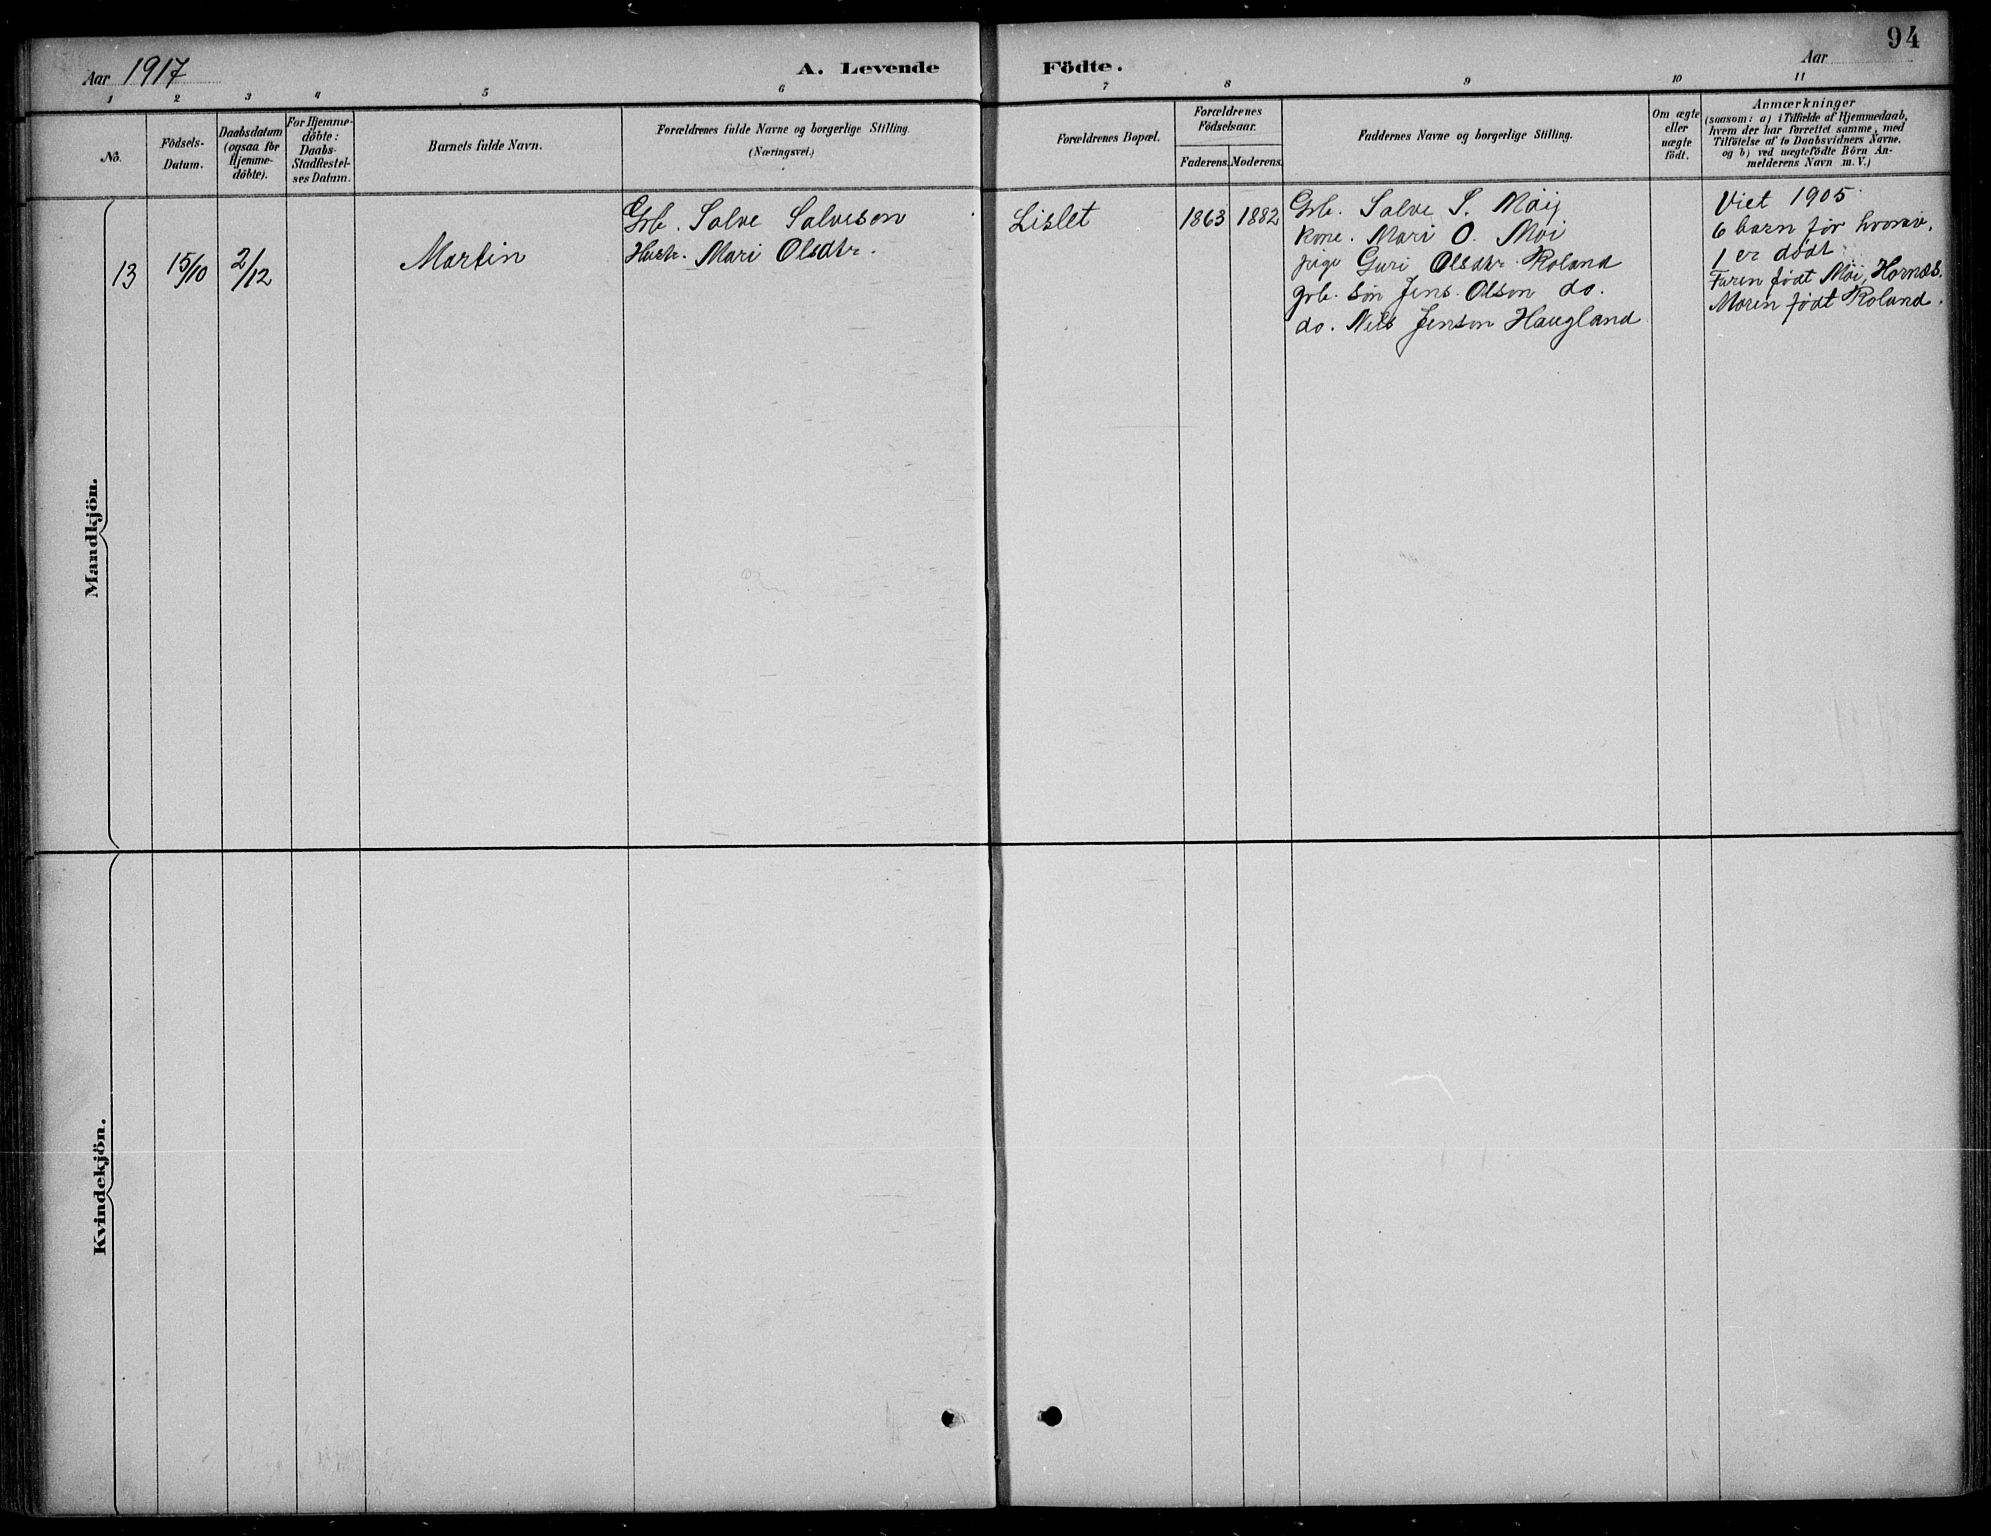 94
Aar 1917
A. Levende
Födte.
Aar
1 2 3 4 5 6 7 8 9 10 11
No.
Födsels-
Datum.
Daabsdatum
(ogsaa for
Hjemme-
döbte).
For Hjemme-
döbte:
Daabs-
Stadfæstel-
ses Datum.
Barnets fulde Navn.
Forældrenes fulde Navne og borgerlige Stilling.
(Næringsvei.)
Forældrenes Bopæl.
Forældrenes
Födselsaar.
Faderens. Moderens.
Faddernes Navne og borgerlige Stilling.
Om ægte
eller
uægte
født.
Anmærkninger
(saasom: a) i Tilfælde af Hjemmedaab,
hvem der har forrettet samme, med
Tilföielse af to Daabsvidners Navne.
og b) ved uægtefödte Börn An-
melderens Navn m. V.)
Mandkjön.
13
15/10
2/12
Martin
Grb. Salve Salveson
Hustr. Mari Olsdtr.
Lislet
1863
1882
Grb. Salve S. Möij
kone. Mari O. Moi
pige Guri Olsdtr. Roland
grb. søn Jens Olson do.
do. Nils Jenson Haugland
Viet 1905
6 barn før hvorav
1 er dødt
Faren født Möi, Hornæs.
Moren født Roland.
Kvindekjön.